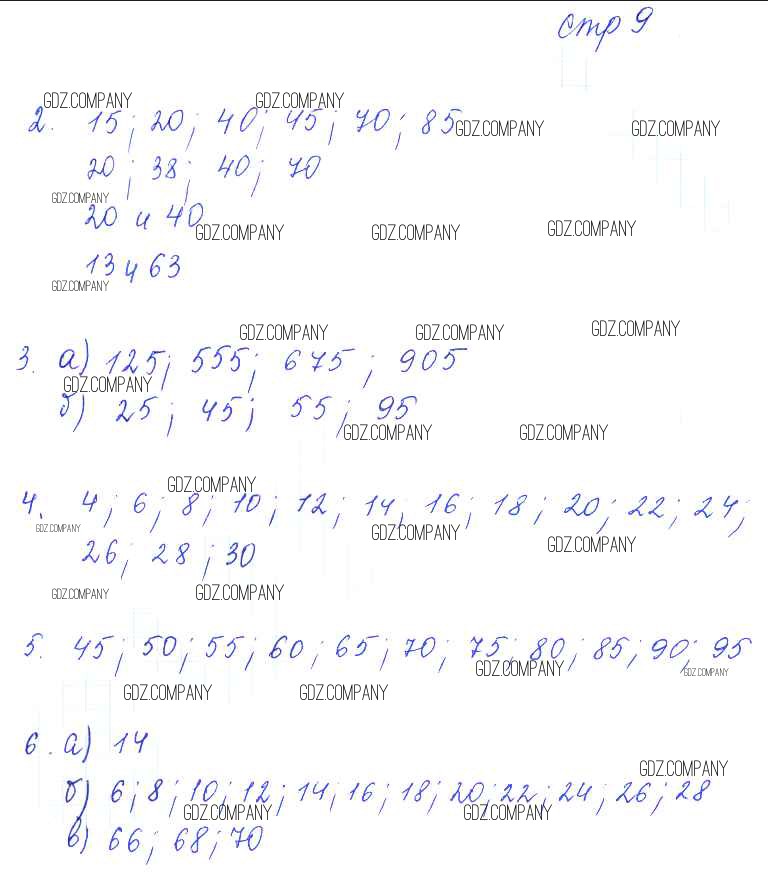 стр 9
GDZ.COMPANY GDZ.COMPANY
2. 15; 20; 40; 45; 70; 85 GDZ.COMPANY GDZ.COMPANY
20; 38; 40; 70
GDZ.COMPANY
20 и 40
GDZ.COMPANY GDZ.COMPANY GDZ.COMPANY
13 и 63
GDZ.COMPANY
GDZ.COMPANY GDZ.COMPANY GDZ.COMPANY
3. а) 125; 555; 675; 905
GDZ.COMPANY
б) 25; 45; 55; 95
GDZ.COMPANY GDZ.COMPANY
GDZ.COMPANY
4. 4; 6; 8; 10; 12; 14; 16; 18; 20; 22; 24;
GDZ.COMPANY GDZ.COMPANY GDZ.COMPANY
26; 28; 30
GDZ.COMPANY GDZ.COMPANY
5. 45; 50; 55; 60; 65; 70; 75; 80; 85; 90; 95
GDZ.COMPANY GDZ.COMPANY
GDZ.COMPANY GDZ.COMPANY
6. а) 14
GDZ.COMPANY
б) 6; 8; 10; 12; 14; 16; 18; 20; 22; 24; 26; 28
GDZ.COMPANY GDZ.COMPANY
в) 66; 68; 70